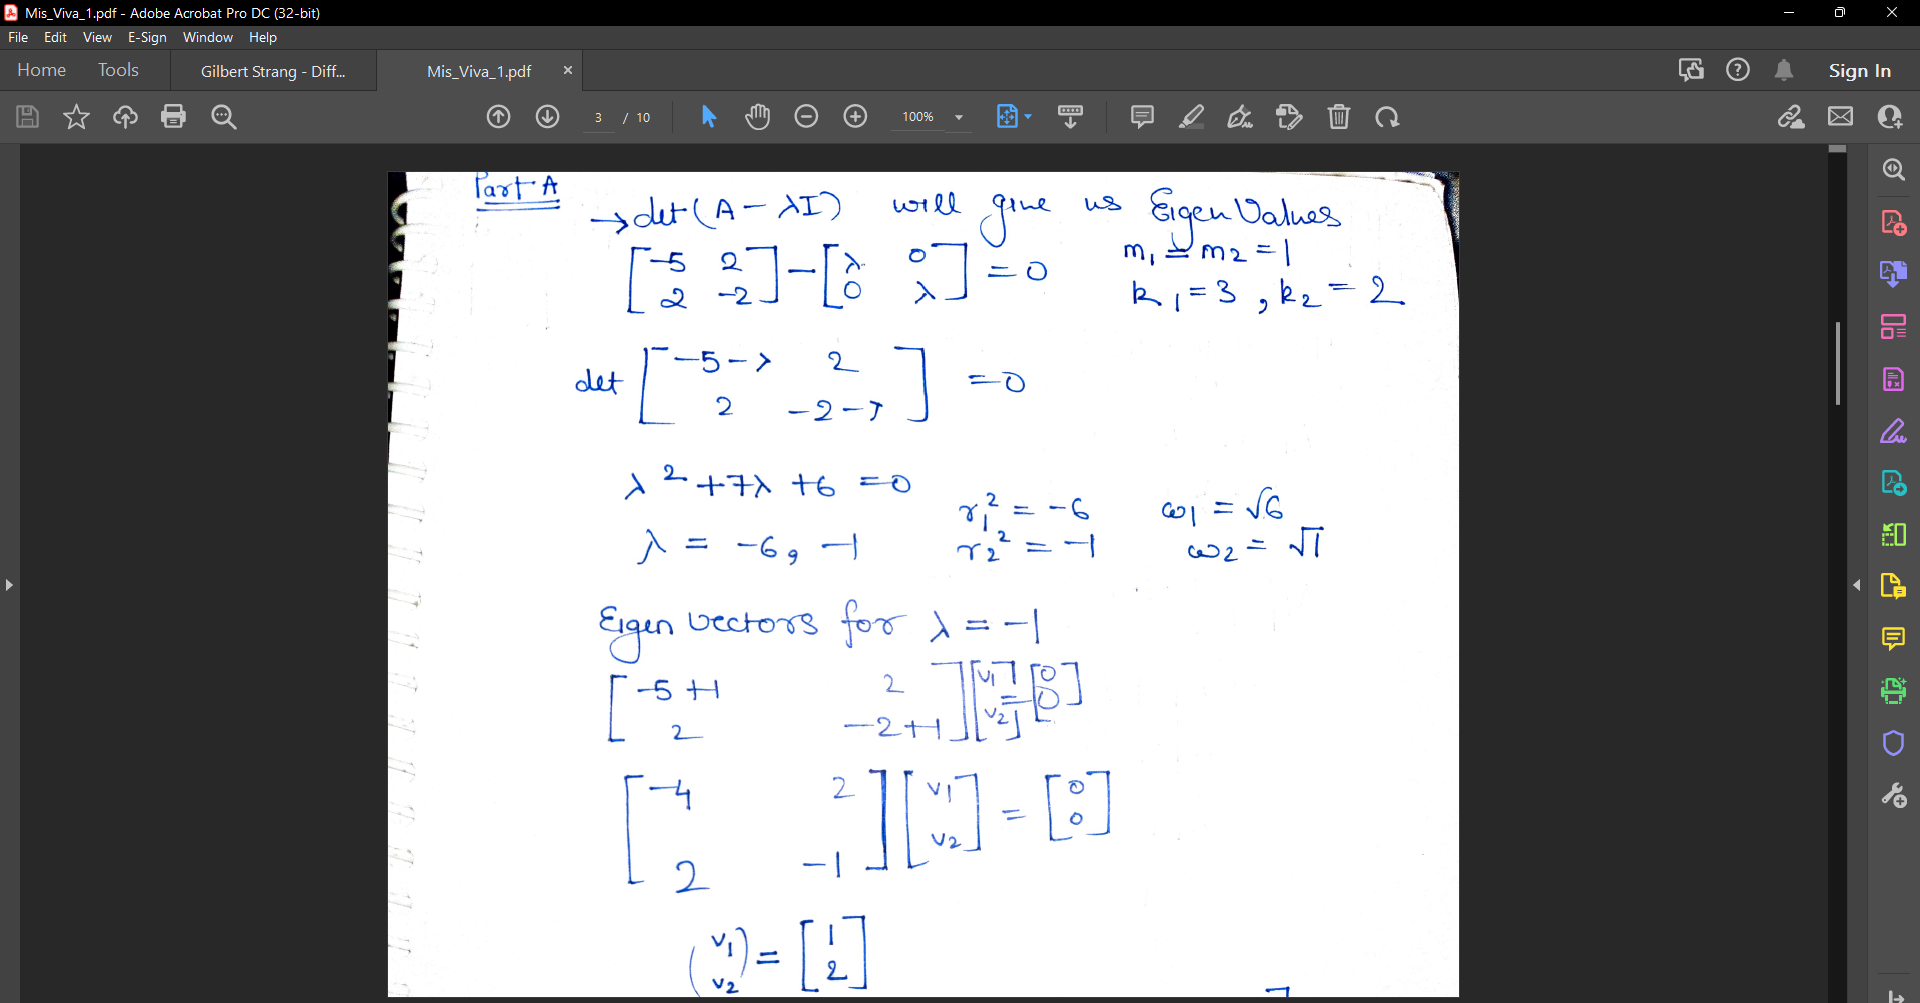 Mis_Viva_1.pdf - Adobe Acrobat Pro DC (32-bit)
File Edit View E-Sign Window Help
Home Tools Gilbert Strang - Diff... Mis_Viva_1.pdf × Sign In
3 / 10 100%
Part A
→ det(A - λI) will give us Eigen Values
m₁ = m₂ = 1
[-5 2] - [λ 0] = 0
[2 -2] [0 λ]
k₁ = 3, k₂ = 2
det [-5-λ 2] = 0
[2 -2-λ]
λ² + 7λ + 6 = 0
r₁² = -6 ω₁ = √6
λ = -6, -1 r₂² = -1 ω₂ = √1
Eigen vectors for λ = -1
[-5+1 2] [v₁] = [0]
[2 -2+1] [v₂] [0]
[-4 2] [v₁] = [0]
[2 -1] [v₂] [0]
(v₁) = [1]
(v₂) [2]